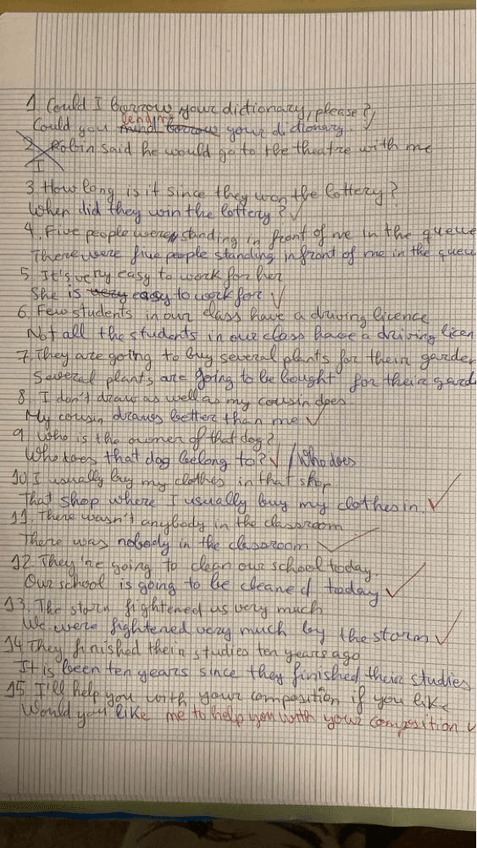 1. Could I borrow your dictionary, please?
lending
Could you mind borrow your dictionary.
2. Robin said he would go to the theatre with me
I
3. How long is it since they won the lottery?
When did they win the lottery?
4. Five people were standing in front of me in the queue
There were five people standing in front of me in the queu
5. It's very easy to work for her
She is very easy to work for
6. Few students in our class have a driving licence
Not all the students in our class have a driving licen
7. They are going to buy several plants for their garden
Several plants are going to be bought for their gard
8. I don't draw as well as my cousin does
My cousin draws better than me
9. Who is the owner of that dog?
Who does that dog belong to? / Who does
10. I usually buy my clothes in that shop
That shop where I usually buy my clothes in.
11. There wasn't anybody in the classroom
There was nobody in the classroom
12. They're going to clean our school today.
Our school is going to be cleaned today
13. The storm fightened us very much
We were fightened very much by the storm
14. They finished their studies ten years ago
It is been ten years since they finished their studies
15. I'll help you with your composition if you like
Would you like me to help you with your composition